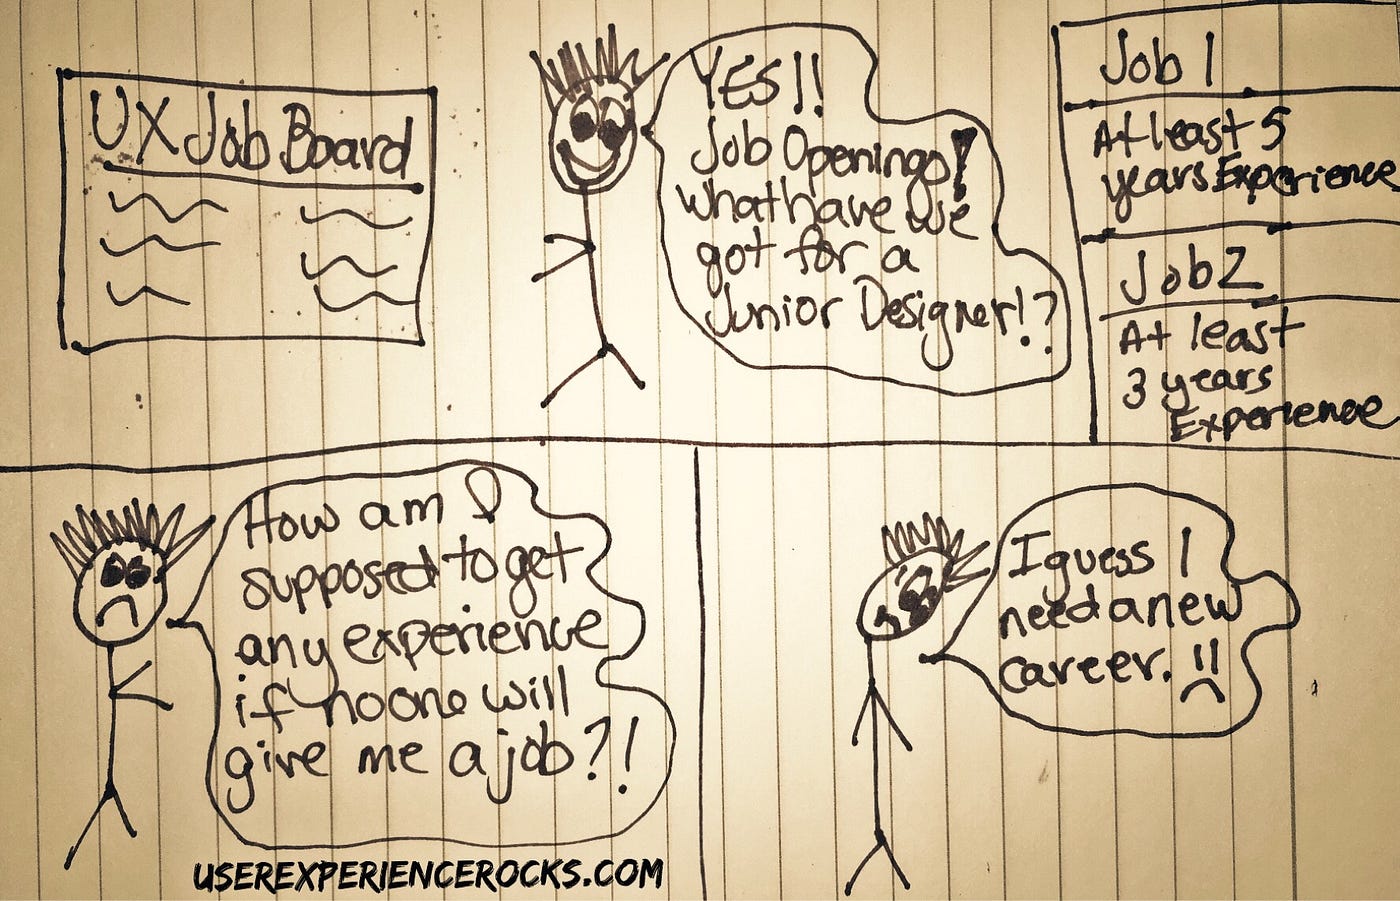 UX Job Board
YES!!
Job Openings!
What have we
got for a
Junior Designer!?
Job 1
At least 5
years Experience
Job 2
At least
3 years
Experience
How am I
supposed to get
any experience
if no one will
give me a job?!
I guess I
need a new
career.
USEREXPERIENCEROCKS.COM